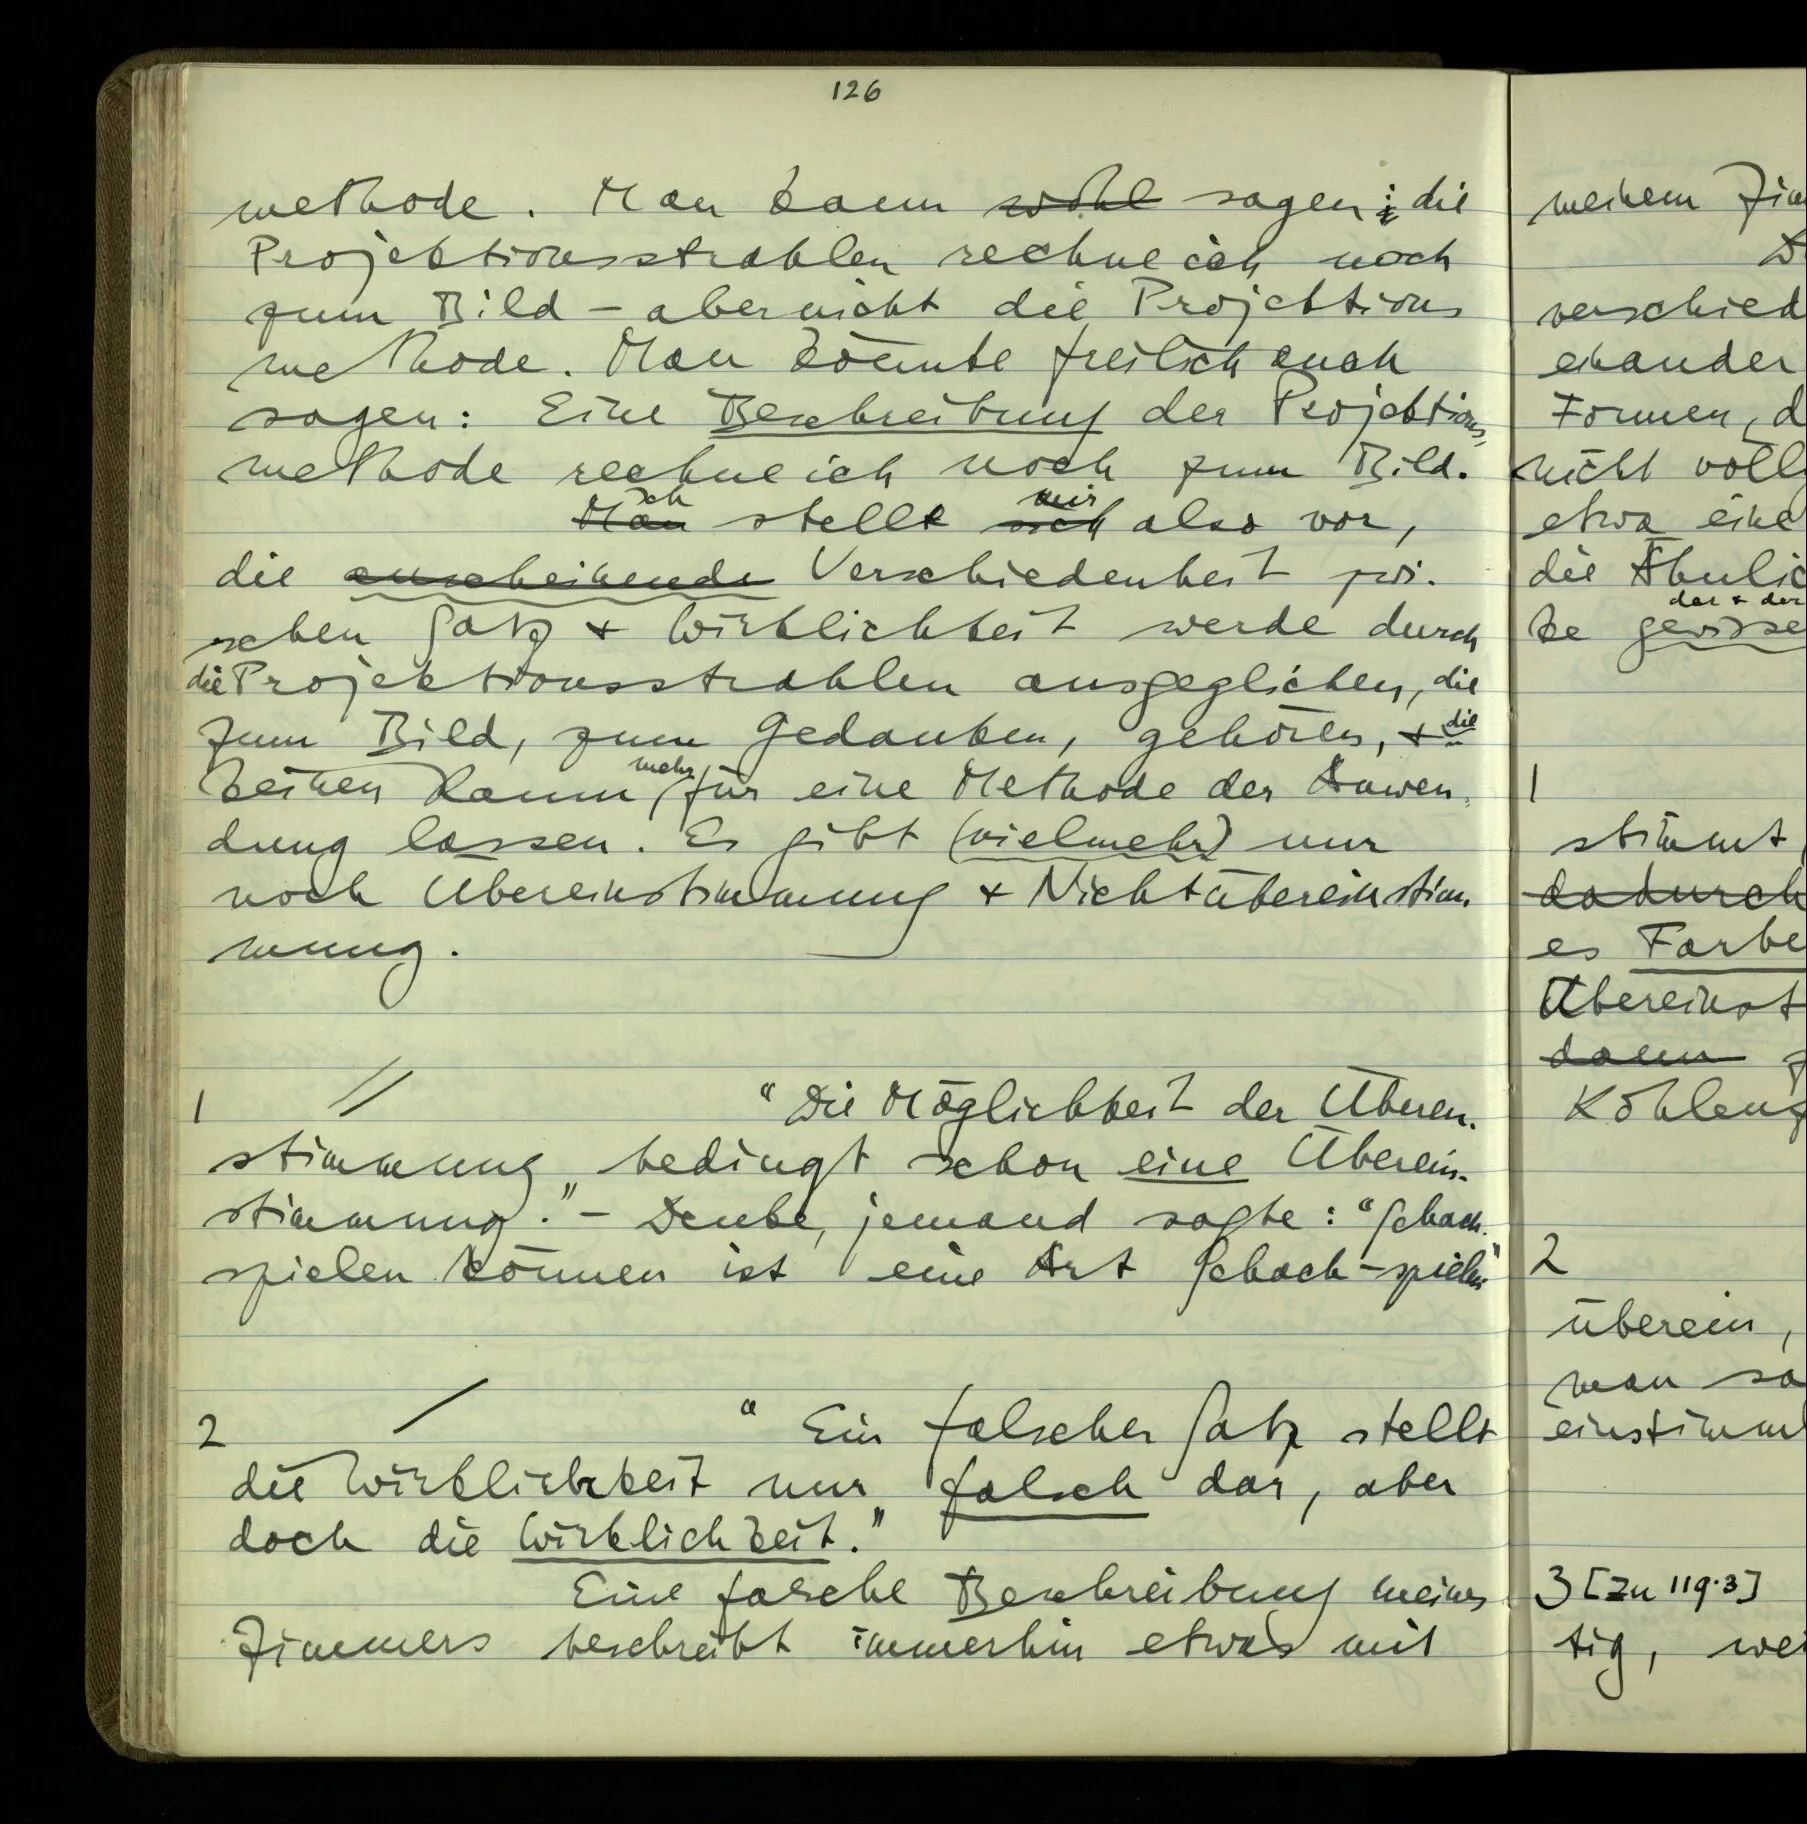 126
methode. Man kann wohl sagen: die
Projektionsstrahlen rechne ich noch
zum Bild – aber nicht die Projektions
methode. Man könnte freilich auch
sagen: Eine Beschreibung der Projektions-
methode rechne ich noch zum Bild.
ch mir
Man stelle sich also vor,
die anscheinende Verschiedenheit zwi-
schen Satz + Wirklichkeit werde durch
die Projektionsstrahlen ausgeglichen, die
zum Bild, zum Gedanken, gehören, + die
mehr
keinen Raum für eine Methode der Anwen-
dung lassen. Es gibt (vielmehr) nur
noch Übereinstimmung + Nichtübereinstim-
mung.
1 // “Die Möglichkeit der Überein-
stimmung bedingt schon eine Überein-
stimmung.” – Denke, jemand sagte: “Schach-
spielen können ist eine Art Schach-spielen”
2 / “Ein falscher Satz stellt
die Wirklichkeit nur falsch dar, aber
doch die Wirklichkeit.”
Eine falsche Beschreibung meines
Zimmers beschreibt immerhin etwas mit
meinem Zim
verschied
einander
Formen, d
nicht voll
etwa eine
die Ähnlic
der + der
ke gewisse
1
stimmt
dadurch
es Farbe
Übereinst
dann
2
überein,
man sa
einstimm
3 [Zu 119·3]
tig, wei